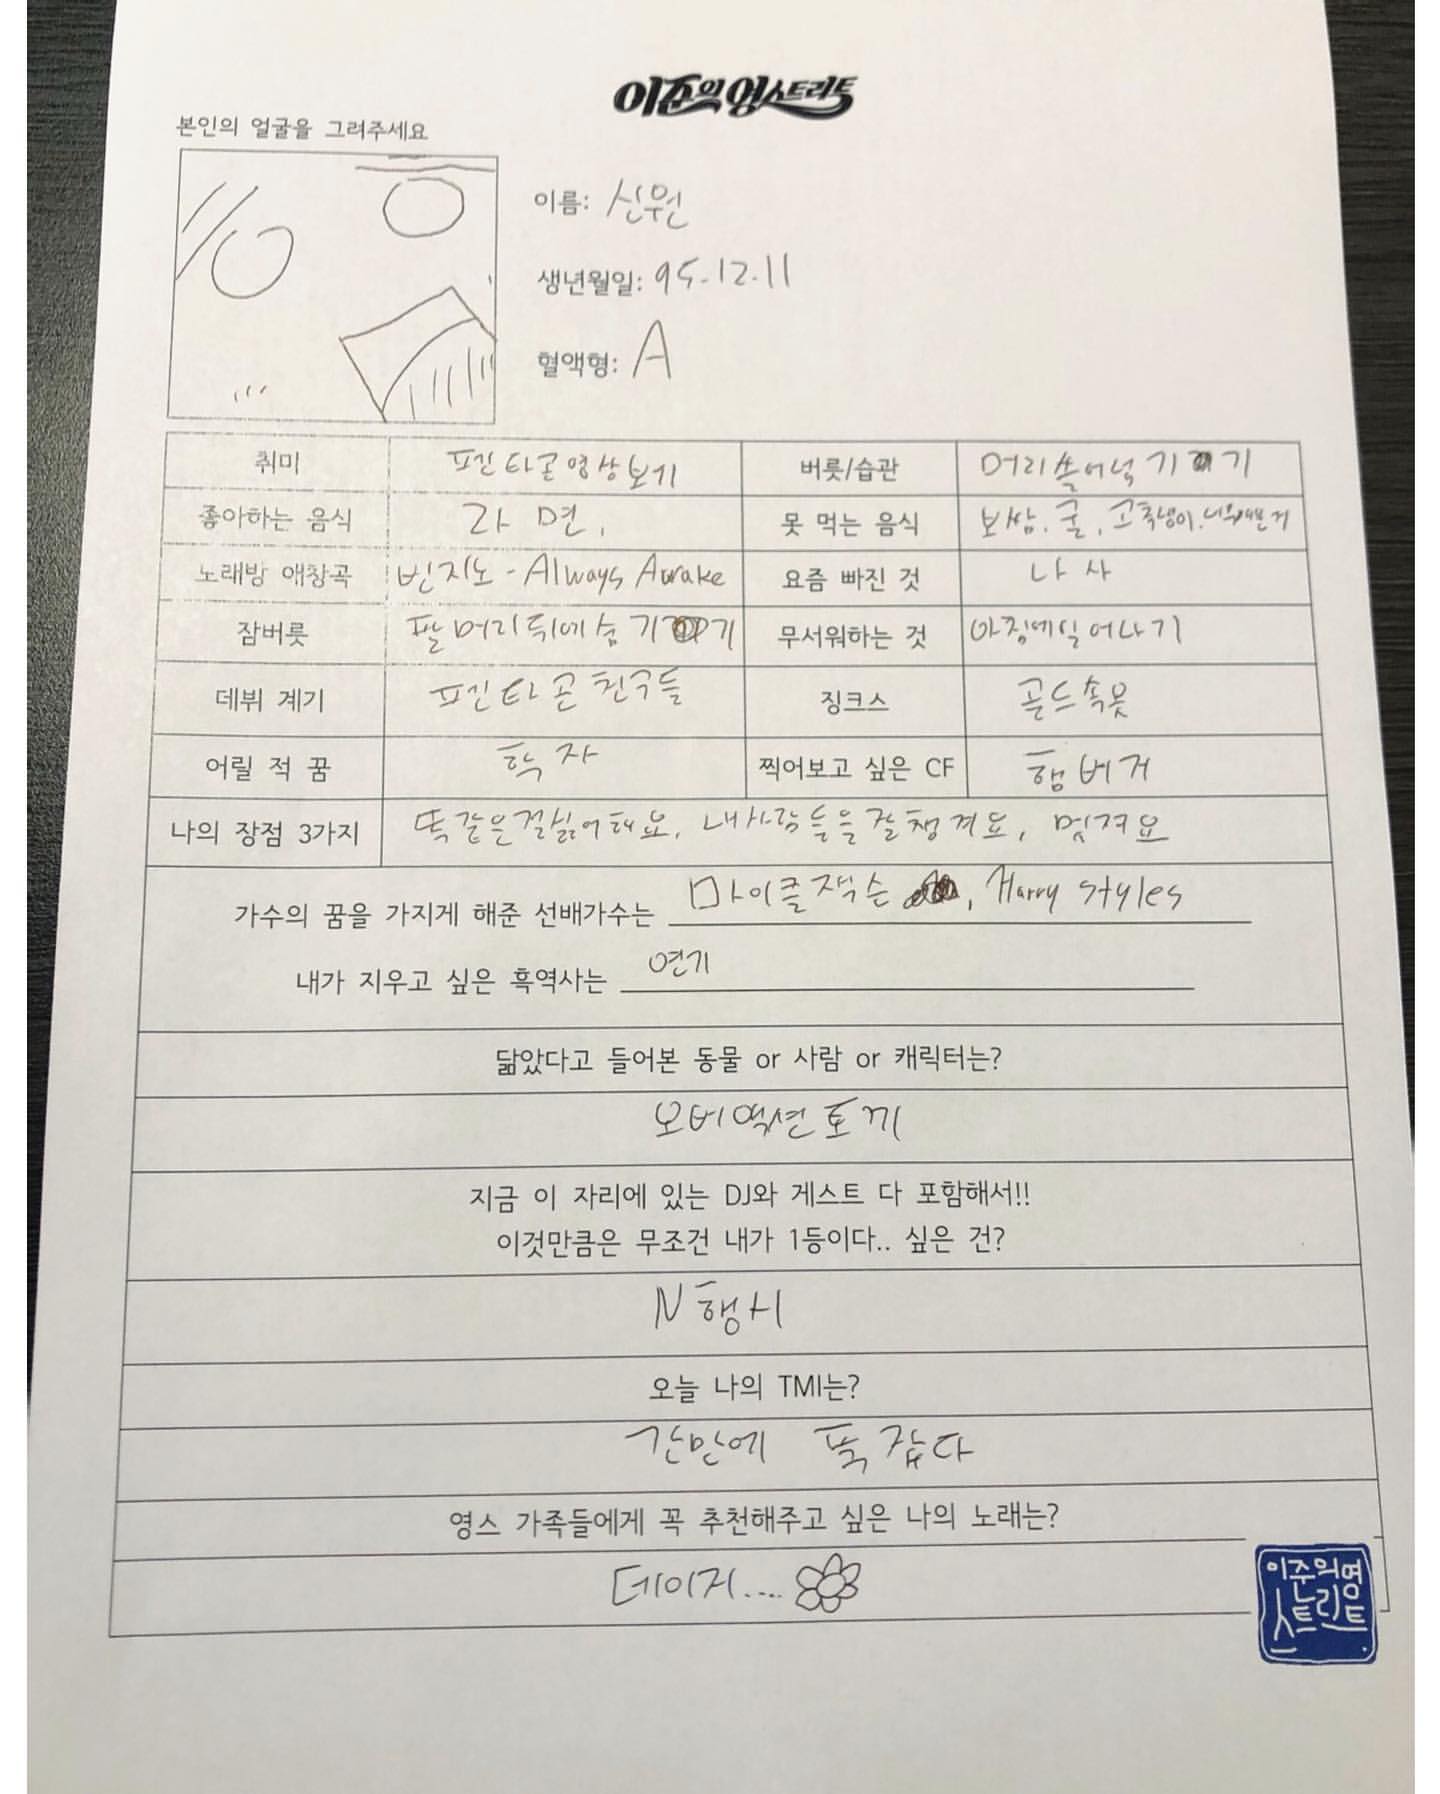 이준의 영스트리트
본인의 얼굴을 그려주세요
이름: 신원
생년월일: 95.12.11
혈액형: A
취미 펜타곤영상보기 버릇/습관 머리쓸어넘기기
좋아하는 음식 라면, 못 먹는 음식 보쌈, 굴, 고추냉이, 너무매운거
노래방 애창곡 빈지노 - Always Awake 요즘 빠진 것 나사
잠버릇 팔머리뒤에숨기기 무서워하는 것 아침에일어나기
데뷔 계기 펜타곤친구들 징크스 골드속옷
어릴 적 꿈 학자 찍어보고 싶은 CF 햄버거
나의 장점 3가지 똑같은걸싫어해요, 내사람들을잘챙겨요, 웃겨요
가수의 꿈을 가지게 해준 선배가수는 마이클잭슨, Harry Styles
내가 지우고 싶은 흑역사는 연기
닮았다고 들어본 동물 or 사람 or 캐릭터는?
오버액션토끼
지금 이 자리에 있는 DJ와 게스트 다 포함해서!!
이것만큼은 무조건 내가 1등이다.. 싶은 건?
N행시
오늘 나의 TMI는?
간만에 푹잤다
영스 가족들에게 꼭 추천해주고 싶은 나의 노래는?
데이지....
이준의영
스트리트